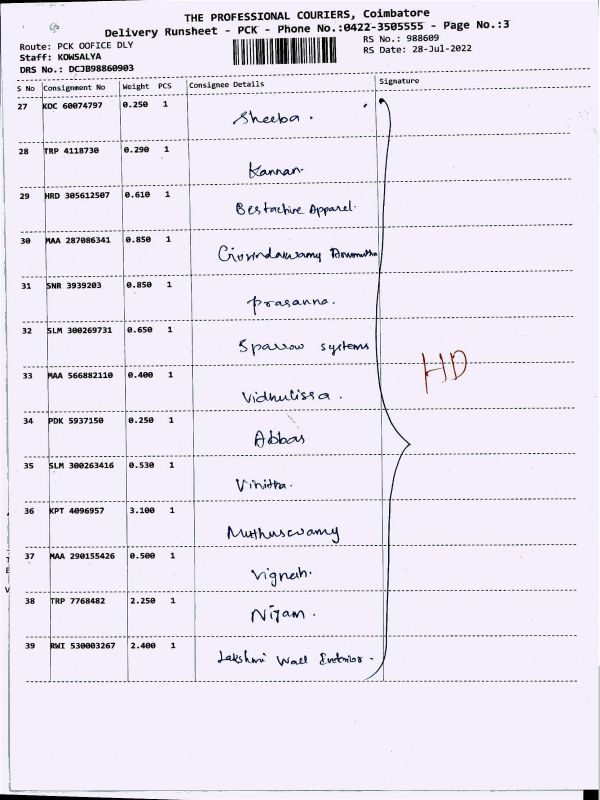 THE PROFESSIONAL COURIERS, Coimbatore
Delivery Runsheet - PCK - Phone No.:0422-3505555 - Page No.:3
Route: PCK OOFICE DLY
RS No.: 988609
Staff: KOWSALYA
RS Date: 28-Jul-2022
DRS No.: DCJB98860903
S No Consignment No Weight PCS Consignee Details Signature
27 KOC 60074797 0.250 1 Sheeba.
28 TRP 4118730 0.290 1 Kannan.
29 HRD 305612507 0.610 1 Bestactive Apparel.
30 MAA 287086341 0.850 1 Govindaswamy
31 SNR 3939203 0.850 1 Prasanna.
32 SLM 300269731 0.650 1 Sparrow systems
HD
33 MAA 566882110 0.400 1 Vidhulissa.
34 PDK 5937150 0.250 1 Abbas
35 SLM 300263416 0.530 1 Vinitha.
36 KPT 4096957 3.100 1 Muthuswamy
37 MAA 290155426 0.500 1 Vignesh.
38 TRP 7768482 2.250 1 Nijam.
39 RWI 530003267 2.400 1 Lakshmi Wall Interior.